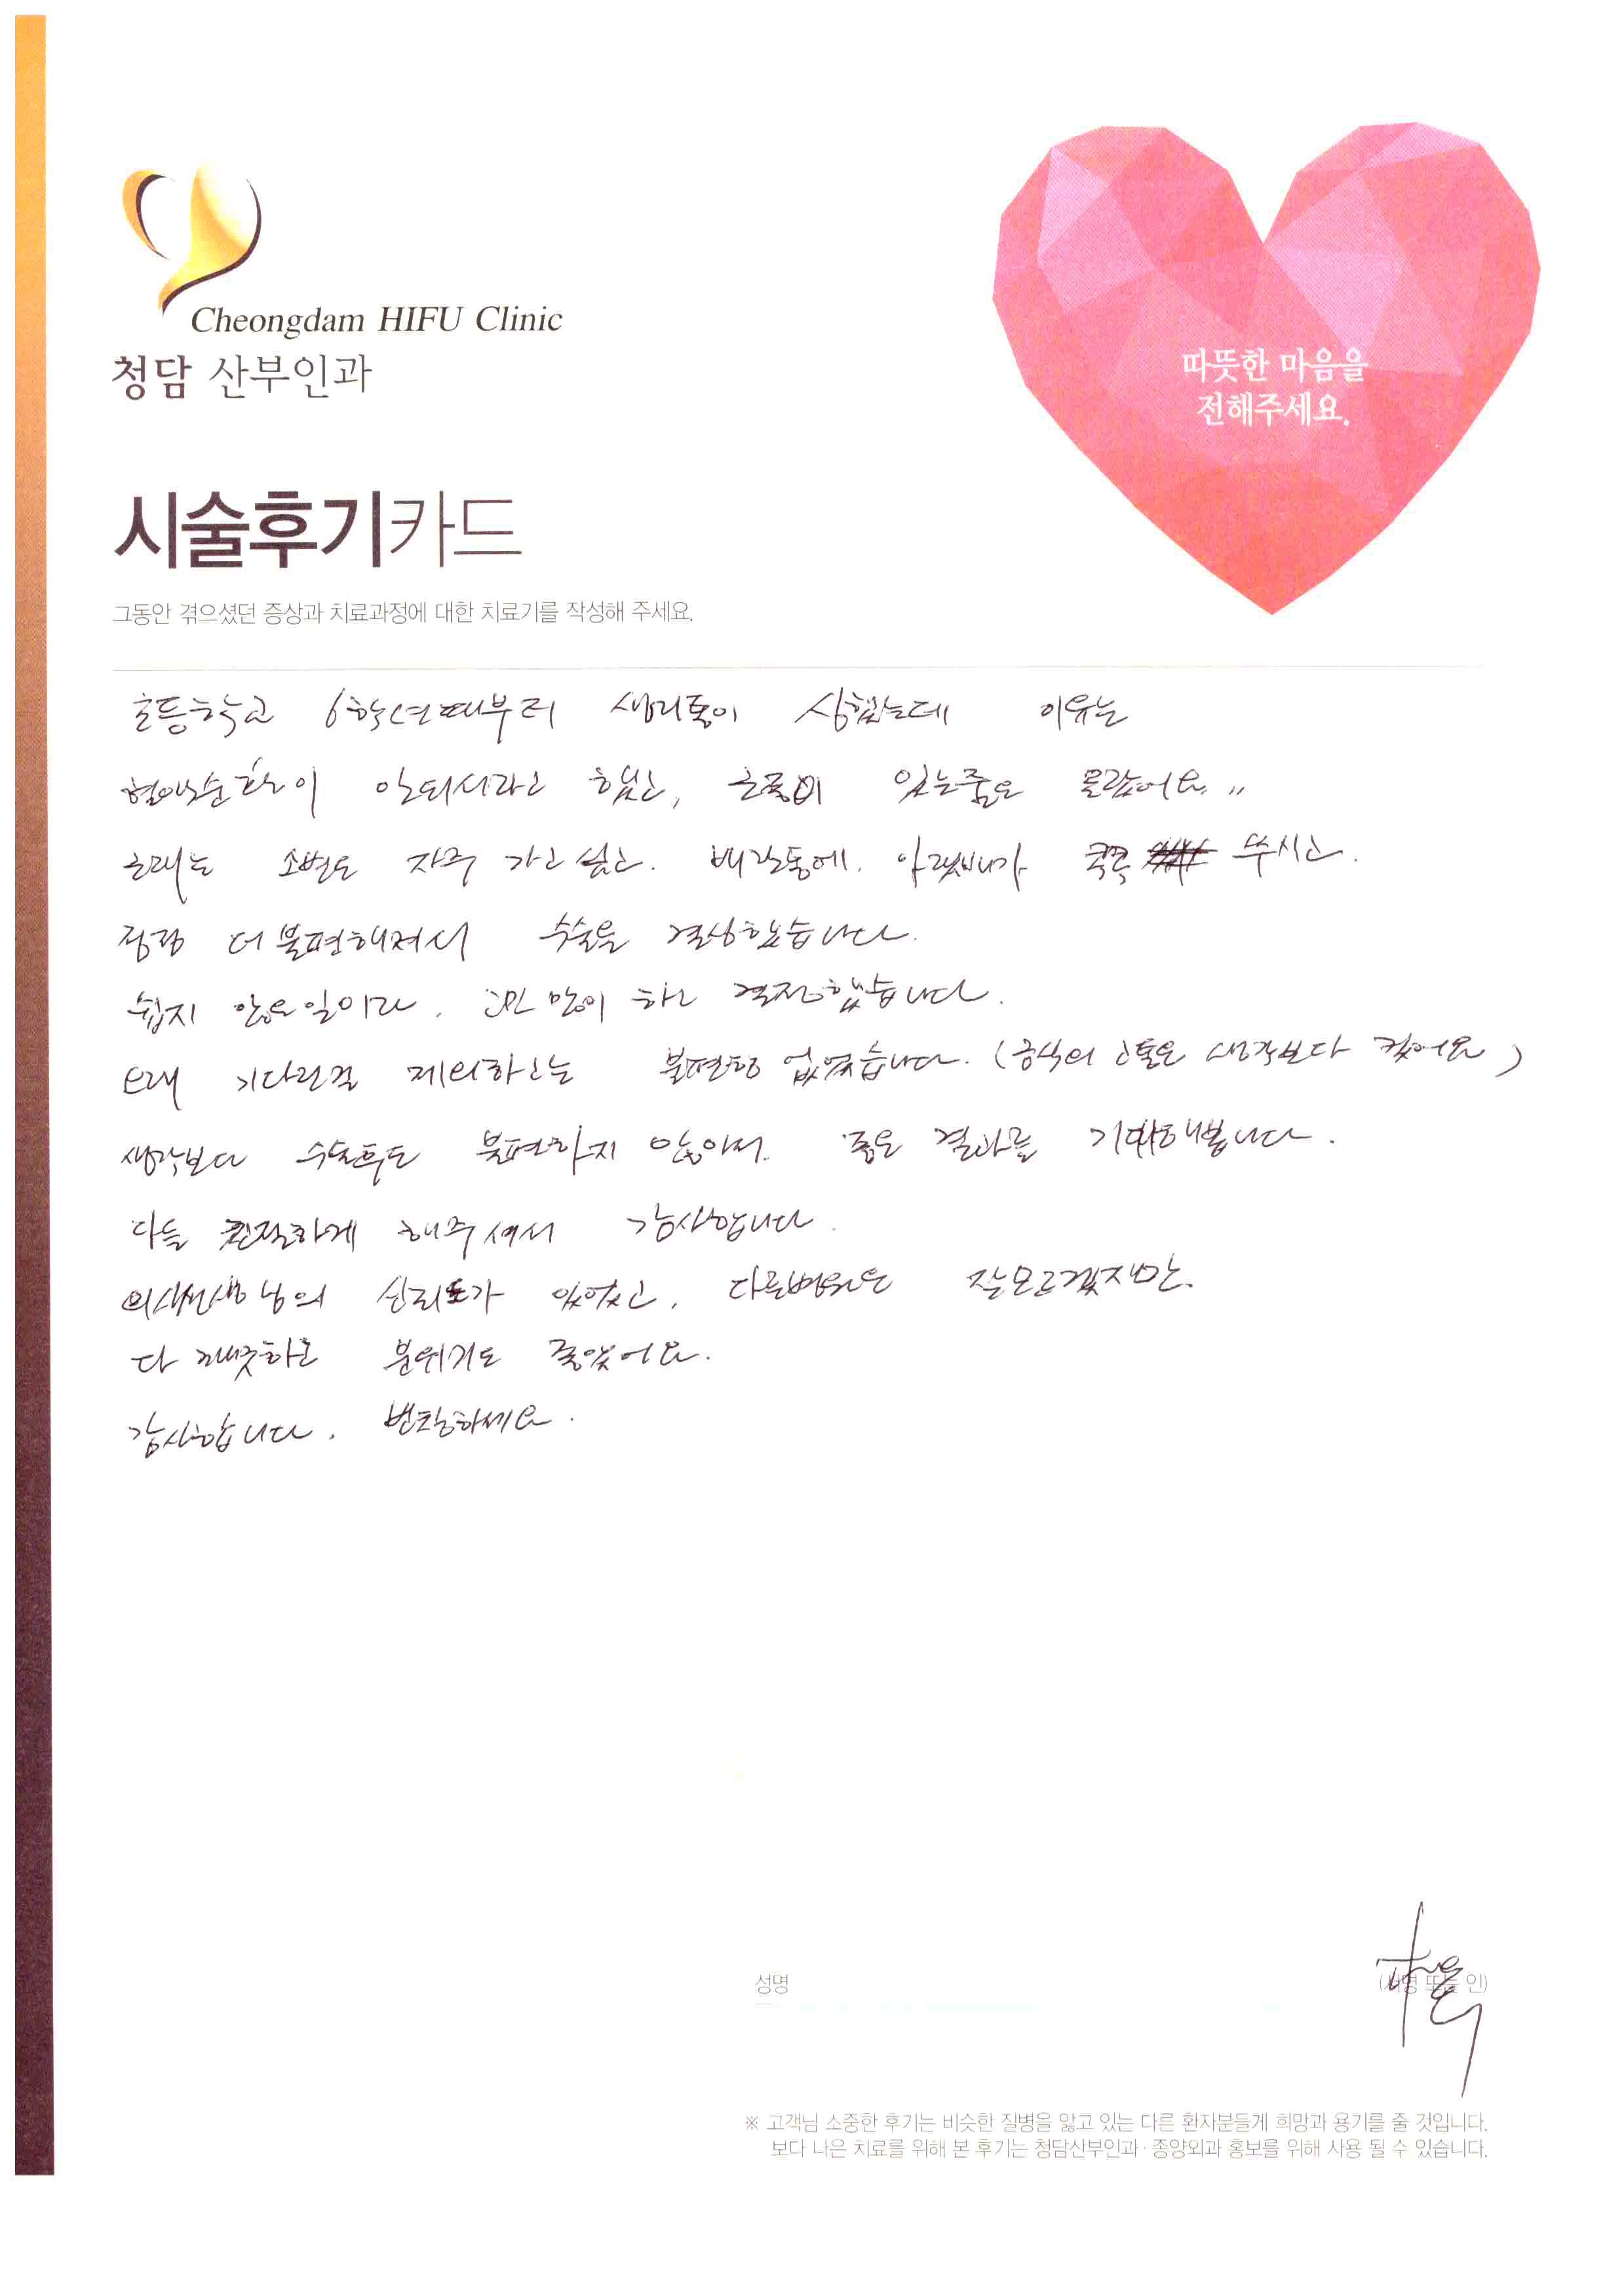 Cheongdam HIFU Clinic
청담 산부인과
따뜻한 마음을
전해주세요.
시술후기카드
그동안 겪으셨던 증상과 치료과정에 대한 치료기를 작성해 주세요.
초등학교 6학년때부터 생리통이 심했는데 이유는
혈액순환이 안되서라고 했고, 근종이 있는줄은 몰랐어요,,
근래는 소변도 자주 가고 싶고. 배란통에. 아랫배가 쿡쿡 쑤시고.
점점 더 불편해져서 수술을 결심했습니다.
쉽지 않은일이라. 고민 많이 하고 결정했습니다.
오래 기다린걸 제외하고는 불편함 없었습니다. (금식의 고통은 생각보다 컸어요)
생각보다 수술후도 불편하지 않아서. 좋은 결과를 기대해봅니다.
다들 친절하게 해주셔서 감사합니다.
의사선생님의 신뢰도가 있었고, 다른병원은 잘모르겠지만.
다 깨끗하고 분위기도 좋았어요.
감사합니다. 번창하세요.
성명
(서명 또는 인)
※ 고객님 소중한 후기는 비슷한 질병을 앓고 있는 다른 환자분들게 희망과 용기를 줄 것입니다.
보다 나은 치료를 위해 본 후기는 청담산부인과·종양외과 홍보를 위해 사용 될 수 있습니다.